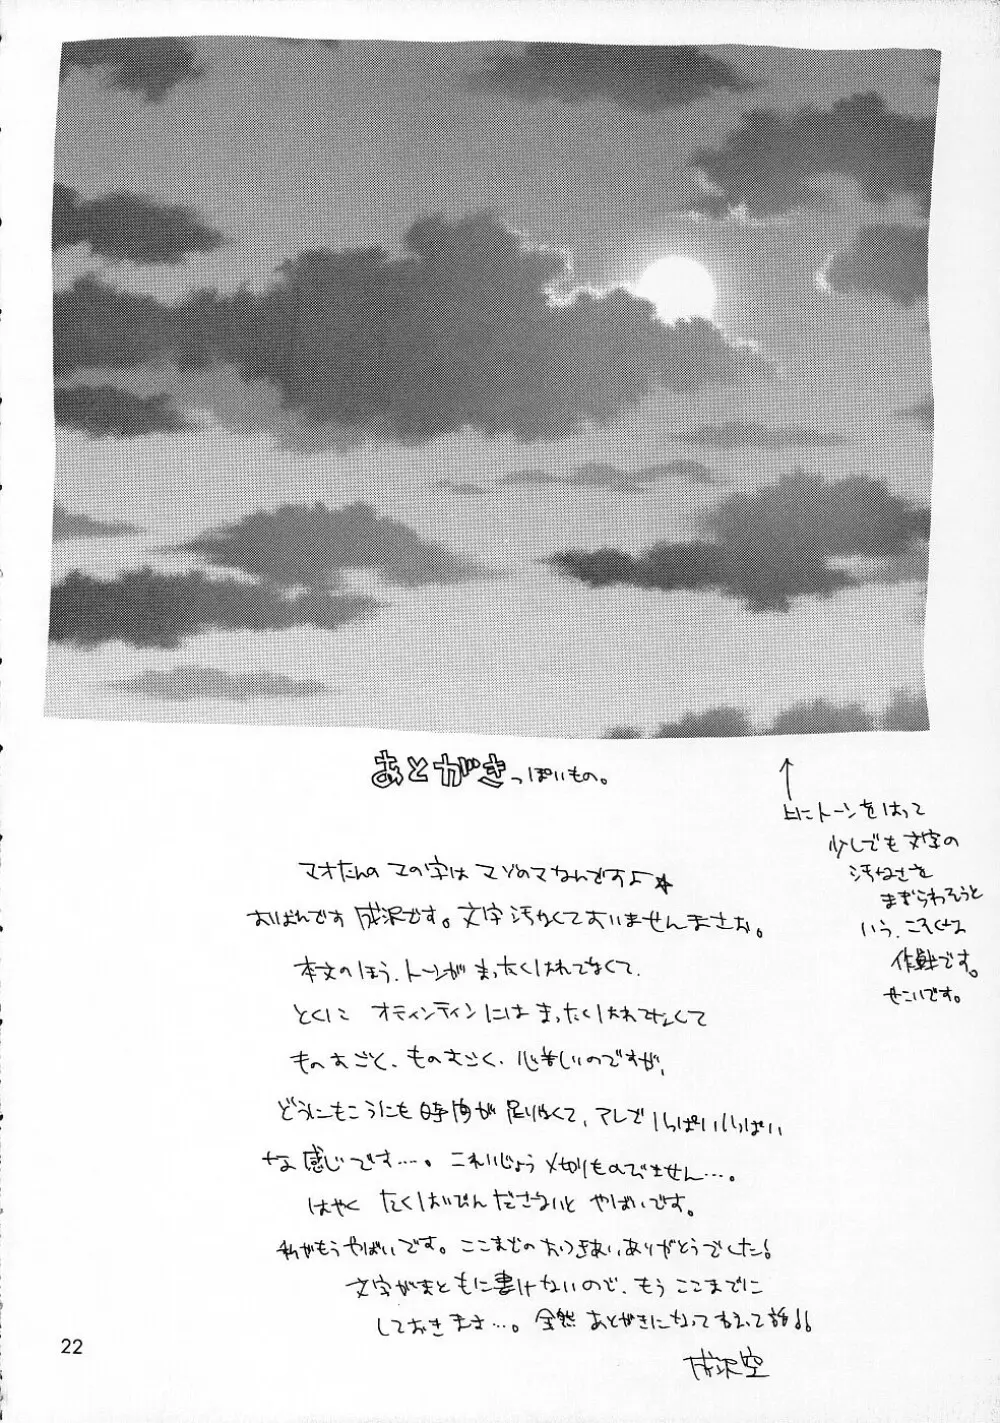 あとがきっぽいもの。
マオたんのマの字はマゾのマなんですよ☆
おばんです成沢です。文字汚なくておいませんまさお。
本文のほう、トーンがまったくはれてなくて、
とくに オティンティンにはまったくはれてなくて
ものすごく、ものすごく、心苦しいのですが、
どうにもこうにも時間が足りなくて、アレでいっぱいいっぱい
な感じです…。これいじょう〆切りものびません…。
はやく たくはいびんださないと やばいです。
私がもうやばいです。ここまでのおつきあいありがとうでした!
文字がまともに書けないので、もうここまでに
しておきます…。全然あとがきになってねえって話!!
成沢空
↑
上にトーンをはって
少しでも文字の
汚なさを
まぎらわそうと
いう、こそくな
作戦です。
せこいです。
22